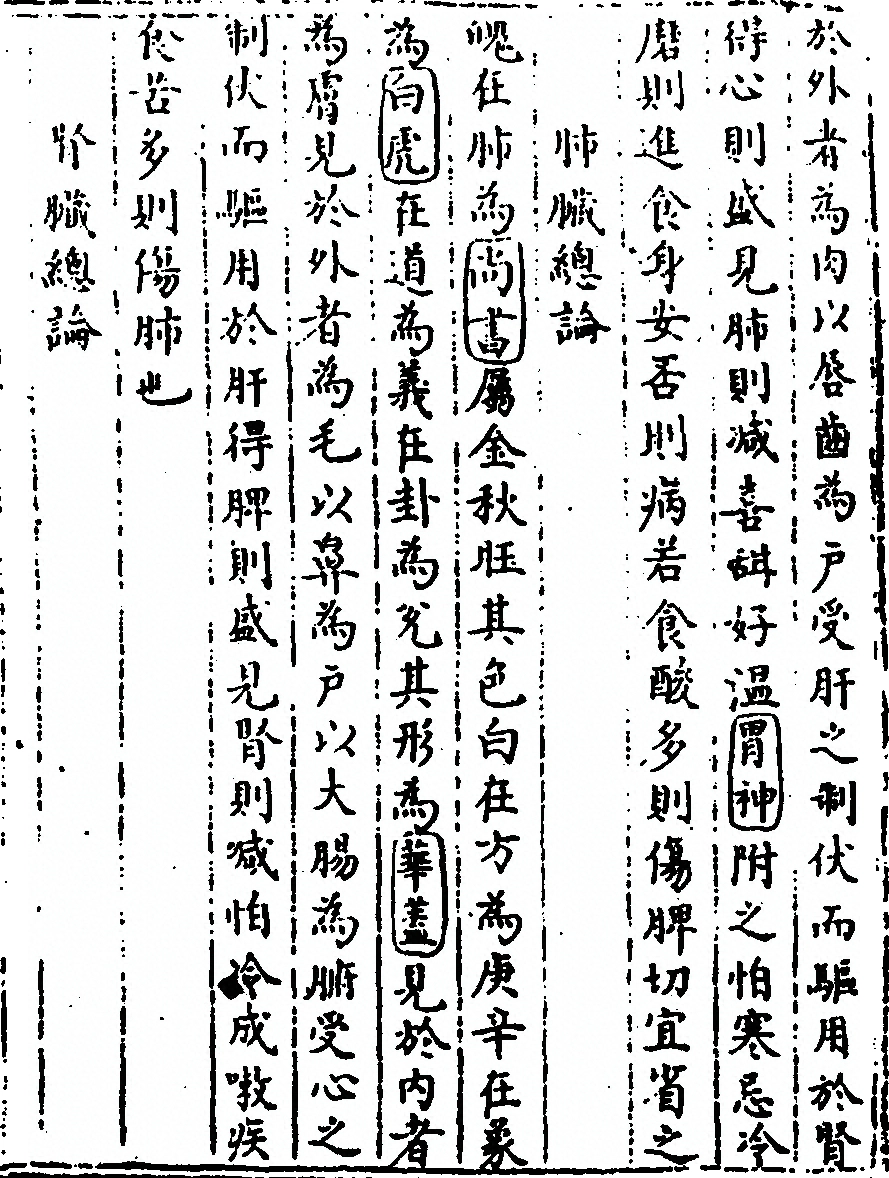 於外者為肉以唇齒為户受肝之制伏而驅用於腎
得心則盛見肺則减喜甜好温胃神附之怕寒忌冷
磨則進食身安否則病若食酸多則傷脾切宜省之
肺臟總論
魄在肺為尚書屬金秋旺其色白在方為庚辛在象
為白虎在道為義在卦為兌其形為華蓋見於内者
為膚見於外者為毛以鼻為户以大腸為腑受心之
制伏而驅用於肝得脾則盛見腎則减怕冷成嗽疾
食苦多則傷肺也
腎臟總論